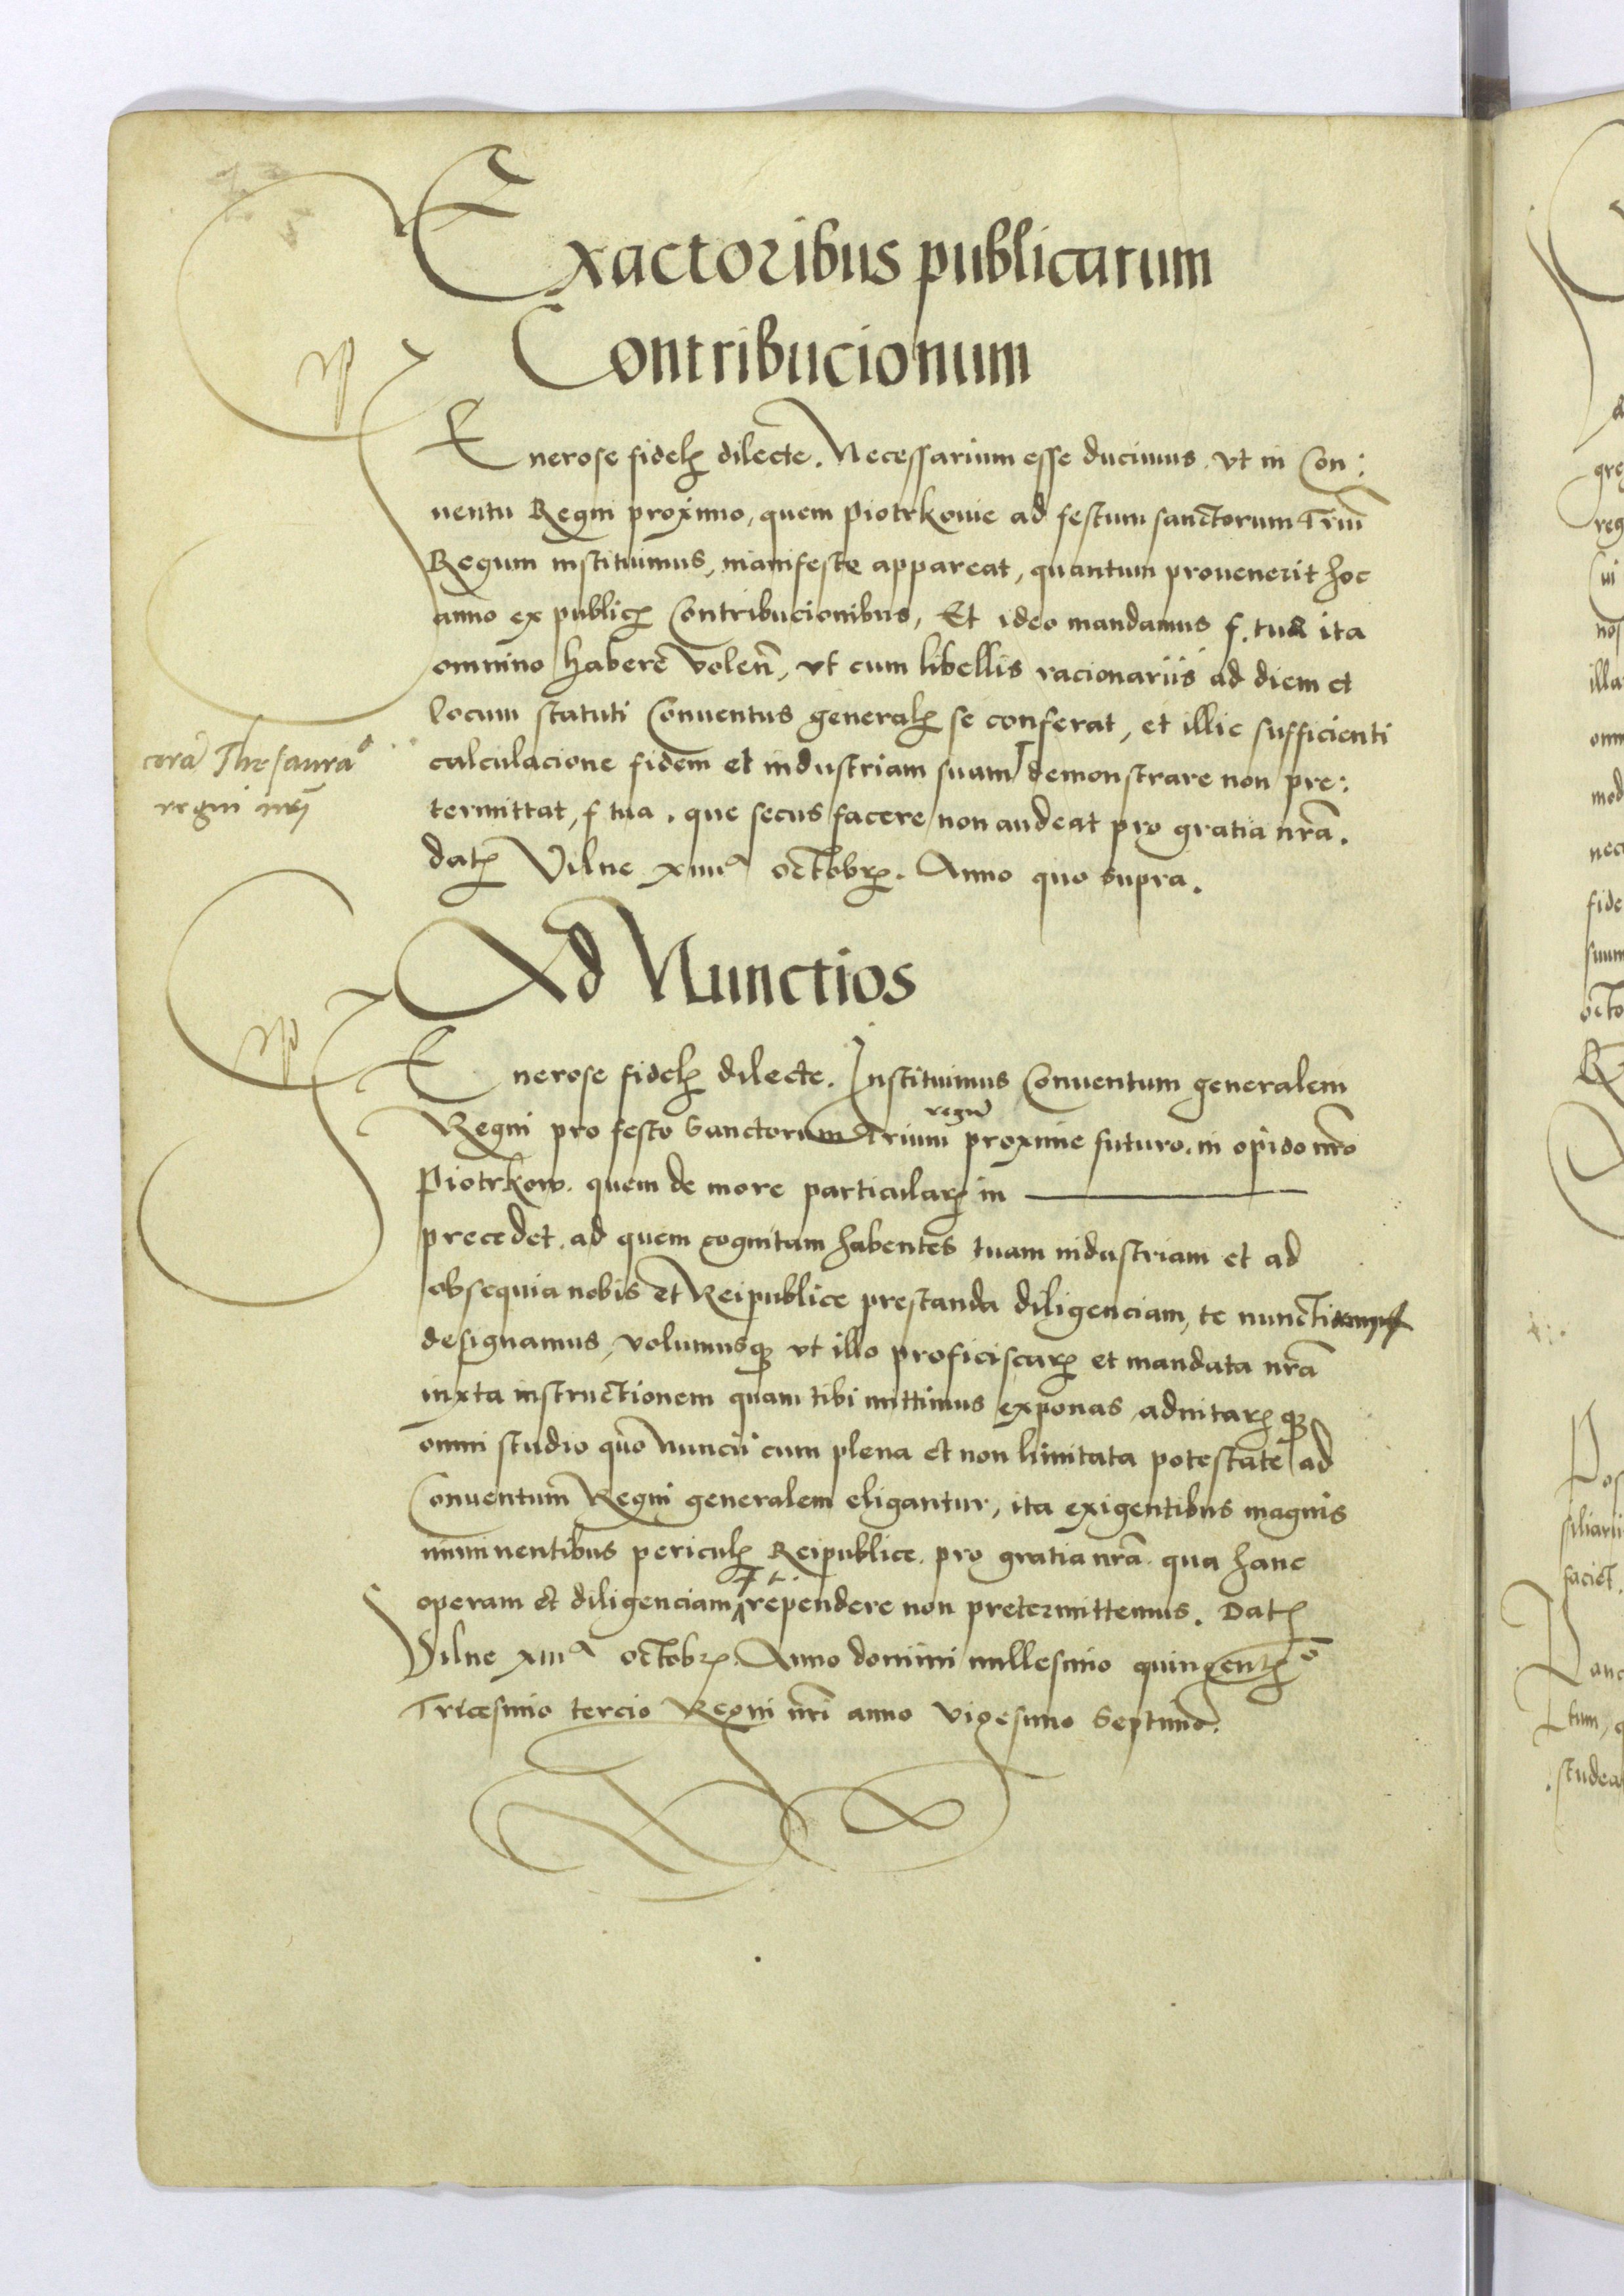 Exactoribus publicarum
Contribucionum
Enerose fideł dilecte. Necessarium esse ducimus. vt in Con:
uentu Regni proximo, quem Piotrkouie ad festum sanctorum Triū
Regum instituimus, manifeste appareat, quantum prouenerit hoc
anno ex public̄ Contribucionibus, Et ideo mandamus f. tua ita
omnino habere voleñ, vt cum libellis racionariis ad diem et
locum statuti Conuentus generał se conferat, et illic sufficienti
calculacione fidem et industriam suam demonstrare non pre:
corā Thesaurā⁰
regni nrī
termittat, f tua. que secus facere non audeat pro gratia nrā.
dat̄ Vilne xiiiiᵃ octobr̄. Anno quo supra.
Ad Nunctios
Enerose fideł dilecte. Instituimus Conuentum generalem
Regni pro festo Sanctorum Trium regū proxime futuro. in opido nrō
Piotrkow. quem de more particular̄ in
precedet. ad quem cognitam habentes tuam industriam et ad
obsequia nobis et Reipublice prestanda diligenciam, te
designamus, volumusq̄ vt illo proficiscar̄ et mandata nrā
iuxta instructionem quam tibi mittimus exponas adnitar̄ q̄
omni studio quo nuncii cum plena et non limitata potestate ad
Conuentum Regni generalem eligantur, ita exigentibus magnis
imminentibus pericuł Reipublice. pro gratia nrā. qua hanc
operam et diligenciam rependere non pretermittemus. Dat̄
Vilne xiiiiᵃ octobr̄. Anno domini millesimo quingent̄⁰
Tricesimo tercio Regni nrī anno vigesimo Septimo.